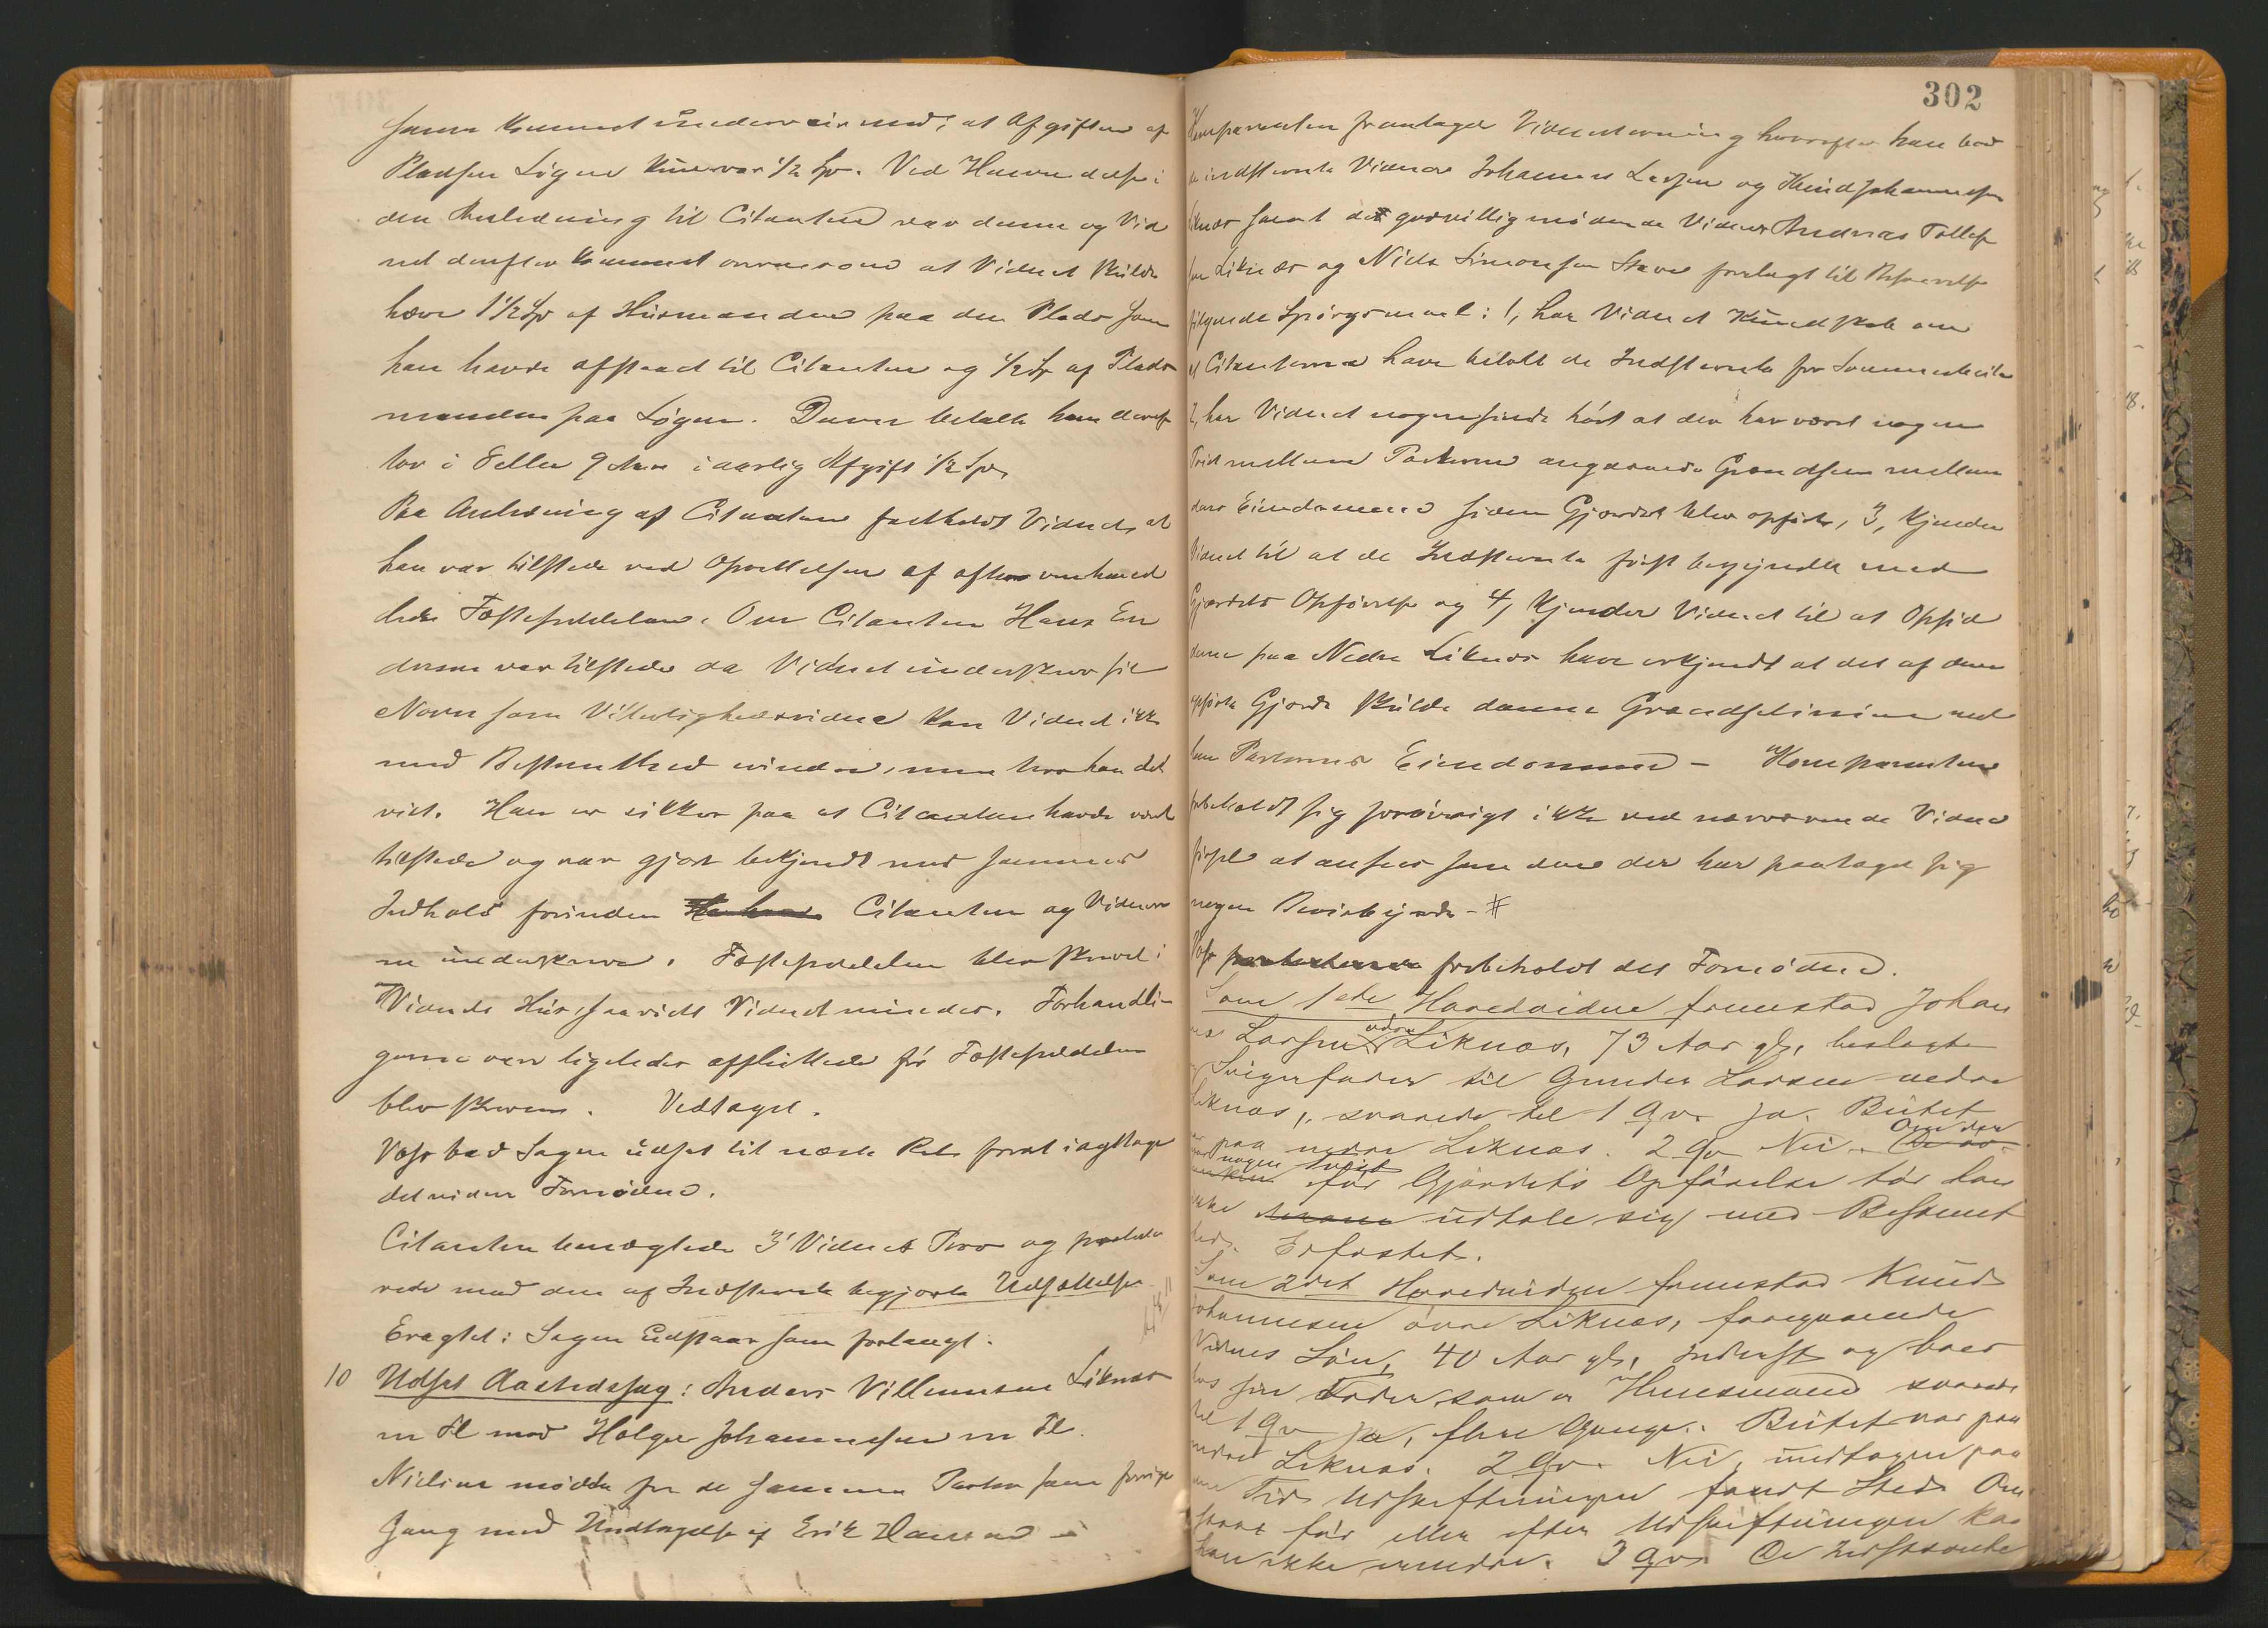 samme kommet underveir med, at Afgiften af
Pladsen Løgen kun var 1/2 Spd. Ved Henvendelse i
den Anledning til Citanten var denne og Vid
net derefter kommet overens om at Vidnet skulde
have 1 1/2 Spd af Husmanden paa den Plads som
han havde afstaaet til Citanten og 1/2 Spd af Plads
manden paa Løgen. Denne betalte ham deref
ter i 8 eller 9 Aar i aarlig Afgift 1/2 Spd.
Paa Anledning af Citanten fastholdt Vidnet, at
han var tilstede ved Oprettelsen af
Fæsteseddelen. Om Citanten Hans En
dresen var tilstede da Vidnet underskrev sit
Navn som Vitterlighedsvidne kan Vidnet ikke
med Bestemthed mindes, men tror han det
vist. Han er sikker paa at Citanten havde været
tilstede og var gjort bekjendt med sammes
Indhold forinden Citanten og Vidner
ne underskrev. Fæsteseddelen blev skrevet i
Vidnets Hus, saavidt Vidnet mindes. Forhandlin
gerne vare ligeledes afsluttede før Fæsteseddelen
blev skreven. Vedtaget.
Voss bad Sagen udsat til næste Ret forat iagttage
det videre Fornødne.
Citanten benægtede 3' Vidnets Prov og proteste
rede mod den af Indstevnte begjærte Udsættelse
Eragtet: Sagen udstaar som forlangt.
10 Udsat Aastedssag: Anders Villumsen Liknæs
m Fl mod Holger Johannessen m Fl.
Nielsen mødte for de samme Parter som forrige
Gang med Undtagelse af Erik Hansen
302
Komparenten fremlagde Vidnestevning hvorefter han bad
de indstevnte Vidner Johannes Larsen og Knud Johannessen
Liknæs samt de godvillig mødende Vidner Andreas Tollefs
sen Liknæs og Niels Simonsen Stave forelagt til Besvarelse
følgende Spørgsmaal: 1, har Vidnet Kundskab om
at Citanterne have betalt de Indstevnte for
2, har Vidnet nogensinde hørt at der har været nogen
Trist mellem Parterne angaaende Grændsen mellem
deres Eiendomme siden Gjærdet blev opført, 3, Kjender
Vidnet til at de Indstevnte først begyndte med
Gjærdets Opførelse og 4, Kjender Vidnet til at Opsid
derne paa Nedre Liknæs have erkjendt at det af dem
opførte Gjærde skulde danne Grændselinien mel
lem Parternes Eiendomme – Komparenten
forbeholdt sig forøvrigt ikke ved nærværende Vidne
førsel at ansees som den der har paataget sig
nogen Bevisbyrde – #
Voss forbeholdt det Fornødne.
Som 1ste Hovedvidne fremstod Johan
nes Larsen øvre Liknæs, 73 Aar gl, beslægtet
Svigerfader til Gunder Larsen nedre
Liknæs, svarede til 1 Qv. Ja. Budet
var paa nedre Liknæs. 2 Qv Nei. Om der
var nogen Tvist før Gjærdets Opførelse tør han
ikke udtale sig med Bestemt
hed. Erfæstet.
Som 2det Hovedvidne fremstod Knud
Johannesen øvre Liknæs, foregaaende
Vidnes Søn, 40 Aar gl, Inderst og boer
hos sin Fader som er Huusmand svarede
til 1 Qv Ja, flere Gange. Budet var paa
nedre Liknæs. 2 Qv. Nei, undtagen paa
den Tid Udskiftningen fandt Sted. Om
før eller efter Udskiftningen kan
han ikke mindes. 3 Qv De Indstevnte